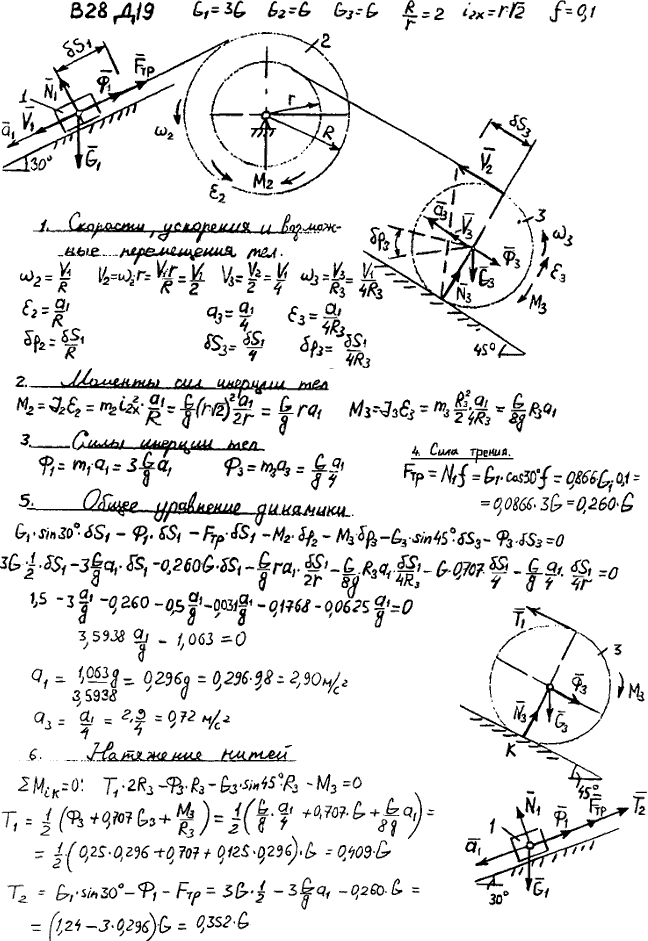 В28 Д19 G₁=3G G₂=G G₃=G R/r=2 i₂ₓ=r√2 f=0,1
δS₁ N̄₁ Φ̄₁ F̄тр 1 V̄₁ ā₁ Ḡ₁ 30°
2 r R ω₂ M₂ ε₂
δS₃ V̄₂ ā₃ V̄₃ 3 ω₃ δφ₃ Φ̄₃ Ḡ₃ ε₃ N̄₃ M₃ 45°
1. Скорости, ускорения и возмож-
ные перемещения тел.
ω₂=V₁/R V₂=ω₂·r=V₁r/R=V₁/2 V₃=V₂/2=V₁/4 ω₃=V₃/R₃=V₁/4R₃
ε₂=a₁/R a₃=a₁/4 ε₃=a₁/4R₃
δφ₂=δS₁/R δS₃=δS₁/4 δφ₃=δS₁/4R₃
2. Моменты сил инерции тел
M₂=J₂ε₂=m₂i₂ₓ²·a₁/R=G/g(r√2)²a₁/2r=G/g ra₁ M₃=J₃ε₃=m₃R₃²/2·a₁/4R₃=G/8g R₃a₁
3. Силы инерции тел
Φ₁=m₁·a₁=3G/g a₁ Φ₃=m₃a₃=G/g a₁/4
4. Сила трения.
Fтр=N₁f=G₁·cos30°f=0,866G₁0,1=
=0,0866·3G=0,260·G
5. Общее уравнение динамики
G₁·sin30°·δS₁-Φ₁·δS₁-Fтр·δS₁-M₂·δφ₂-M₃δφ₃-G₃·sin45°·δS₃-Φ₃·δS₃=0
3G·1/2·δS₁-3G/g a₁·δS₁-0,260G·δS₁-G/g ra₁·δS₁/2r-G/8g·R₃a₁·δS₁/4R₃-G·0,707·δS₁/4-G/g a₁/4·δS₁/4r=0
1,5-3a₁/g-0,260-0,5a₁/g-0,031a₁/g-0,1768-0,0625a₁/g=0
3,5938 a₁/g - 1,063=0
a₁=1,063g/3,5938=0,296g=0,296·9,8=2,90 м/с²
a₃=a₁/4=2,9/4=0,72 м/с²
T̄₁ 3 Φ̄₃ M₃ N̄₃ Ḡ₃ K 45°
6. Натяжение нитей
ΣMᵢₖ=0: T₁·2R₃-Φ₃·R₃-G₃·sin45°R₃-M₃=0
T₁=1/2(Φ₃+0,707G₃+M₃/R₃)=1/2(G/g·a₁/4+0,707·G+G/8g a₁)=
=1/2·(0,25·0,296+0,707+0,125·0,296)·G=0,409·G
T₂=G₁·sin30°-Φ₁-Fтр=3G·1/2-3G/g a₁-0,260·G=
=(1,24-3·0,296)·G=0,352·G
N̄₁ Φ̄₁ F̄тр T̄₂ 1 ā₁ Ḡ₁ 30°